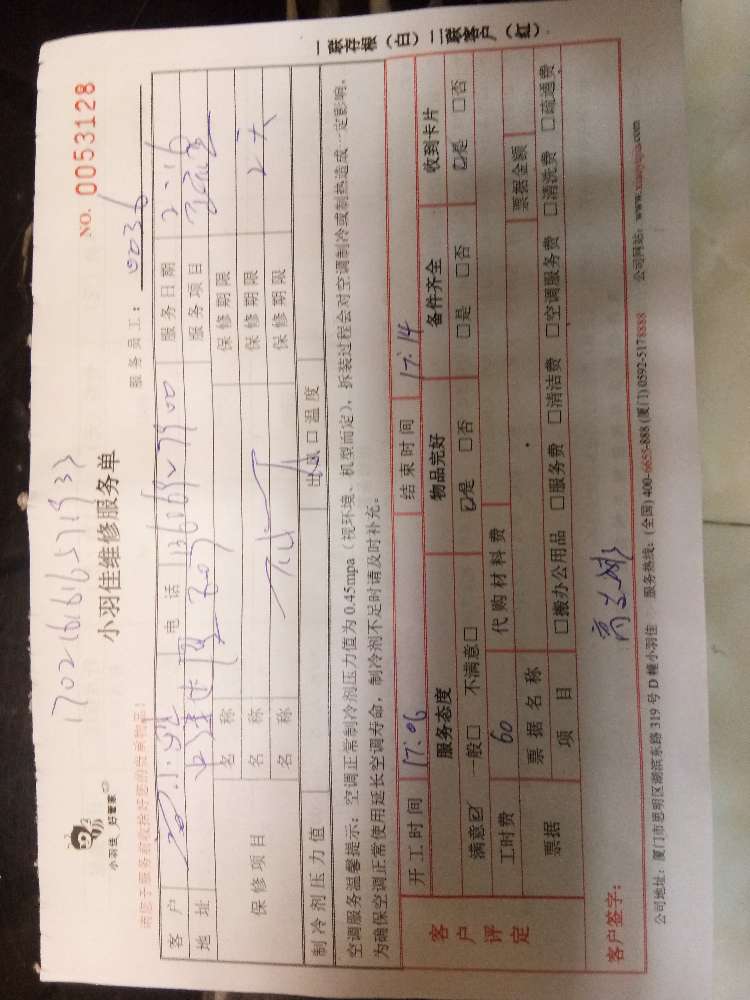 一联存根（白）二联客户（红）
NO. 0053128
小羽佳 好管家
小羽佳维修服务单
服务员工： 0036
请您于服务前收拾好您的贵重物品！
客 户 电 话 服务日期 2.16
地 址 服务项目
保修项目 名 称 保修期限
名 称 保修期限 2天
名 称 保修期限
制冷剂压力值 出风口温度
空调服务温馨提示：空调正常制冷剂压力值为 0.45mpa（视环境、机型而定），拆装过程会对空调制冷或制热造成一定影响，
为确保空调正常使用延长空调寿命，制冷剂不足时请及时补充。
客户评定
开工时间 17:06 结束时间 17:14
服务态度 物品完好 备件齐全 收到卡片
满意☑ 一般□ 不满意□ ☑是 □否 □是 □否 ☑是 □否
工时费 60 代购材料费
票据 票据名称 票据金额
项 目 □搬办公用品 □服务费 □清洁费 □空调服务费 □清洗费 □疏通费
客户签字：
公司地址：厦门市思明区湖滨东路 319 号 D 幢小羽佳 服务热线：(全国) 400-6655-888 (厦门) 0592-5178888 公司网站：www.xiaoyujia.com